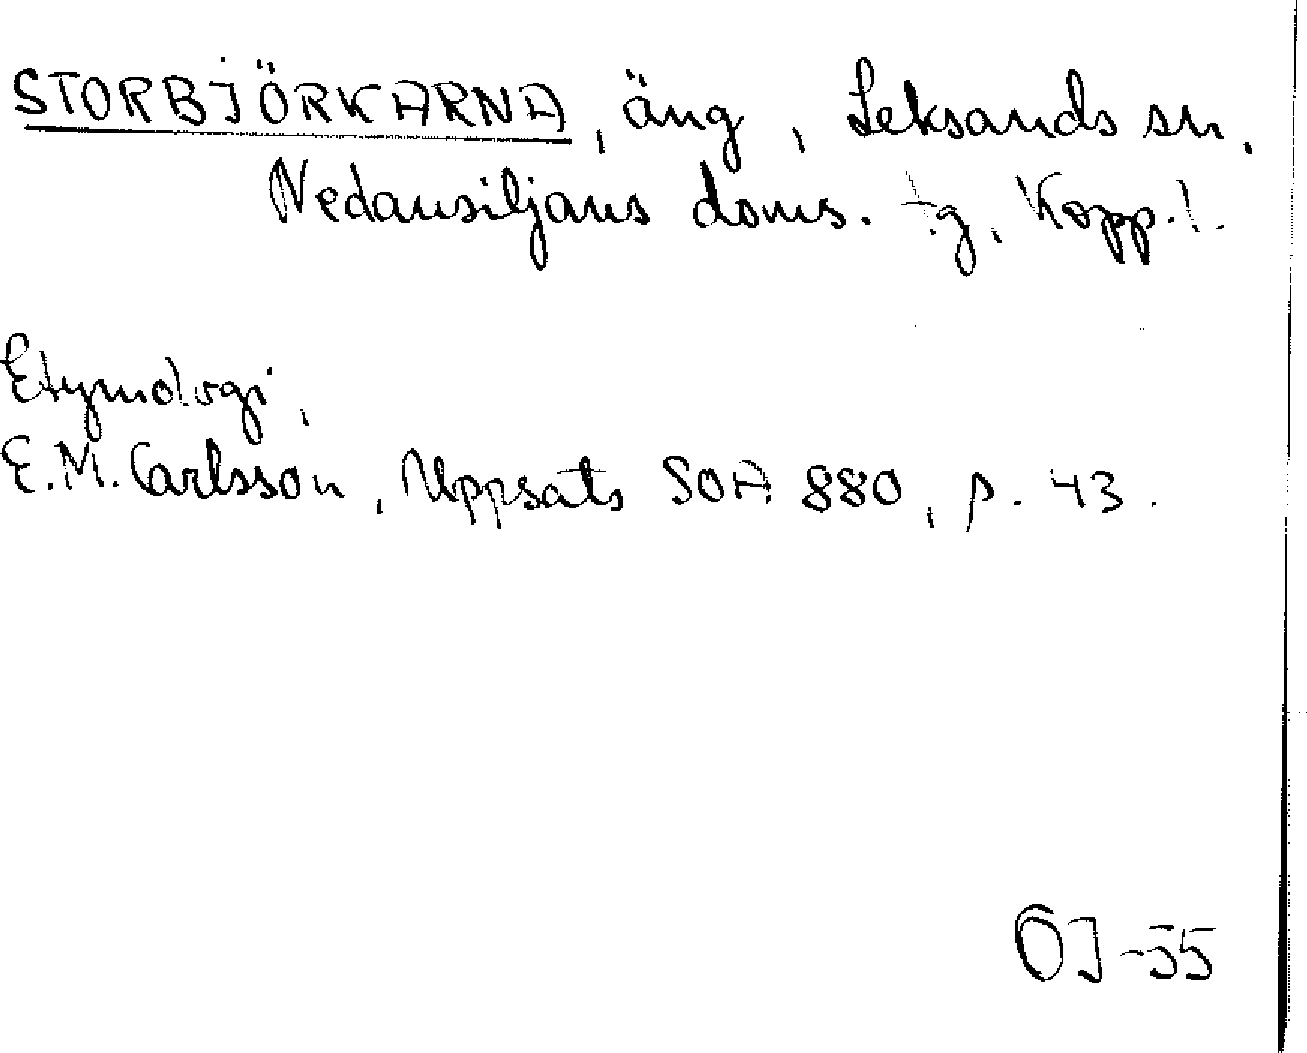 STORBJÖRKARNA, äng, Leksands sn.
Nedansiljans doms. tg, Kopp. l.
Etymologi,
E.M. Carlsson, Uppsats SOA 880, p. 43.
OJ-55